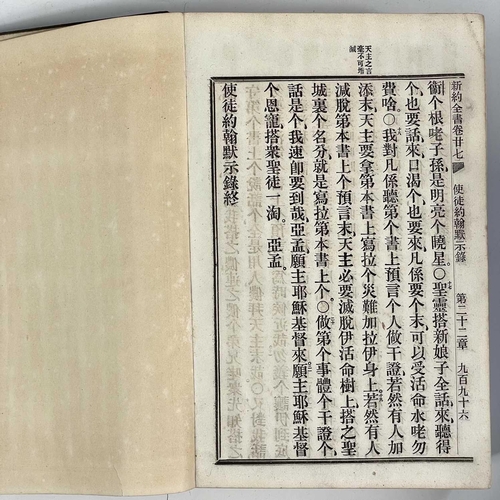 新約全書卷廿七 使徒約翰默示錄 第二十二章 九百九十六
天主之言
毫不可增
減
衞个根咾子孫、是明亮个曉星。○聖靈搭新娘子全話、來、聽得
个、也要話、來、口渴个、也要來、凡係要个末、可以受活命水咾勿
費啥。○我對凡係聽第个書上預言个人做干證、若然有人加
添末、天主要拿第本書上寫拉个災難加拉伊身上。若然有人
減脫第本書上个預言末、天主必要減脫伊活命樹上、搭之聖
城裏个名分、就是寫拉第本書上个。○做第个事體个干證个、
話、是个、我速卽要到哉、亞孟、願主耶穌基督來。願主耶穌基督
个恩寵、搭衆聖徒一淘。亞孟。
使徒約翰默示錄終